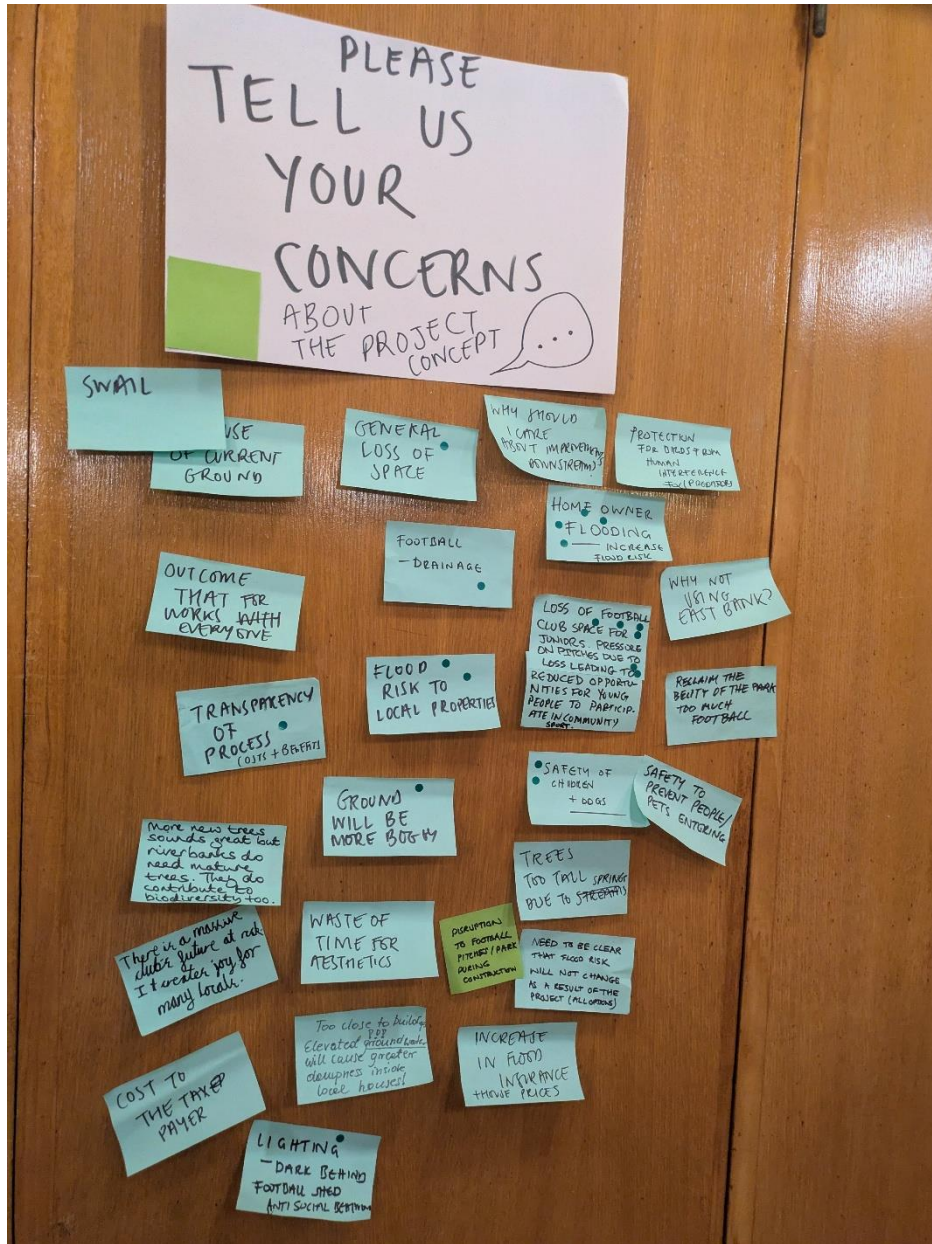 PLEASE
TELL US
YOUR
CONCERNS
ABOUT
THE PROJECT
CONCEPT
SWAIL
USE
OF CURRENT
GROUND
GENERAL
LOSS OF
SPACE
WHY SHOULD
I CARE
ABOUT IMPROVEMENTS
DOWNSTREAM?
PROTECTION
FOR BIRDS FROM
HUMAN
INTERFERENCE
FOX/PREDATORS
HOME OWNER
FLOODING
— INCREASE
FLOOD RISK
FOOTBALL
- DRAINAGE
OUTCOME
THAT FOR
WORKS WITH
EVERYONE
WHY NOT
USING
EAST BANK?
LOSS OF FOOTBALL
CLUB SPACE FOR
JUNIORS. PRESSURE
ON PITCHES DUE TO
LOSS LEADING TO
REDUCED OPPORTU-
NITIES FOR YOUNG
PEOPLE TO PARTICIP-
ATE IN COMMUNITY
SPORT.
FLOOD
RISK TO
LOCAL PROPERTIES
RECLAIM THE
BEUTY OF THE PARK
TOO MUCH
FOOTBALL
TRANSPARENCY
OF
PROCESS
(COSTS + BENEFITS)
SAFETY OF
CHILDREN
+ DOGS
SAFETY TO
PREVENT PEOPLE/
PETS ENTERING
GROUND
WILL BE
MORE BOGGY
More new trees
sounds great but
riverbanks do
need mature
trees. They do
contribute to
biodiversity too.
TREES
TOO TALL SPRINGS
DUE TO STREAMS
There is a massive
clubs future at risk
It creates joy for
many locals.
WASTE OF
TIME FOR
AESTHETICS
DISRUPTION
TO FOOTBALL
PITCHES/PARK
DURING
CONSTRUCTION
NEED TO BE CLEAR
THAT FLOOD RISK
WILL NOT CHANGE
AS A RESULT OF THE
PROJECT (ALL OPTIONS)
Too close to buildings
Elevated
will cause greater
dampness inside
local houses!
INCREASE
IN FLOOD
INSURANCE
+ HOUSE PRICES
COST TO
THE TAX
PAYER
LIGHTING
- DARK BEHIND
FOOTBALL SHED
ANTI SOCIAL